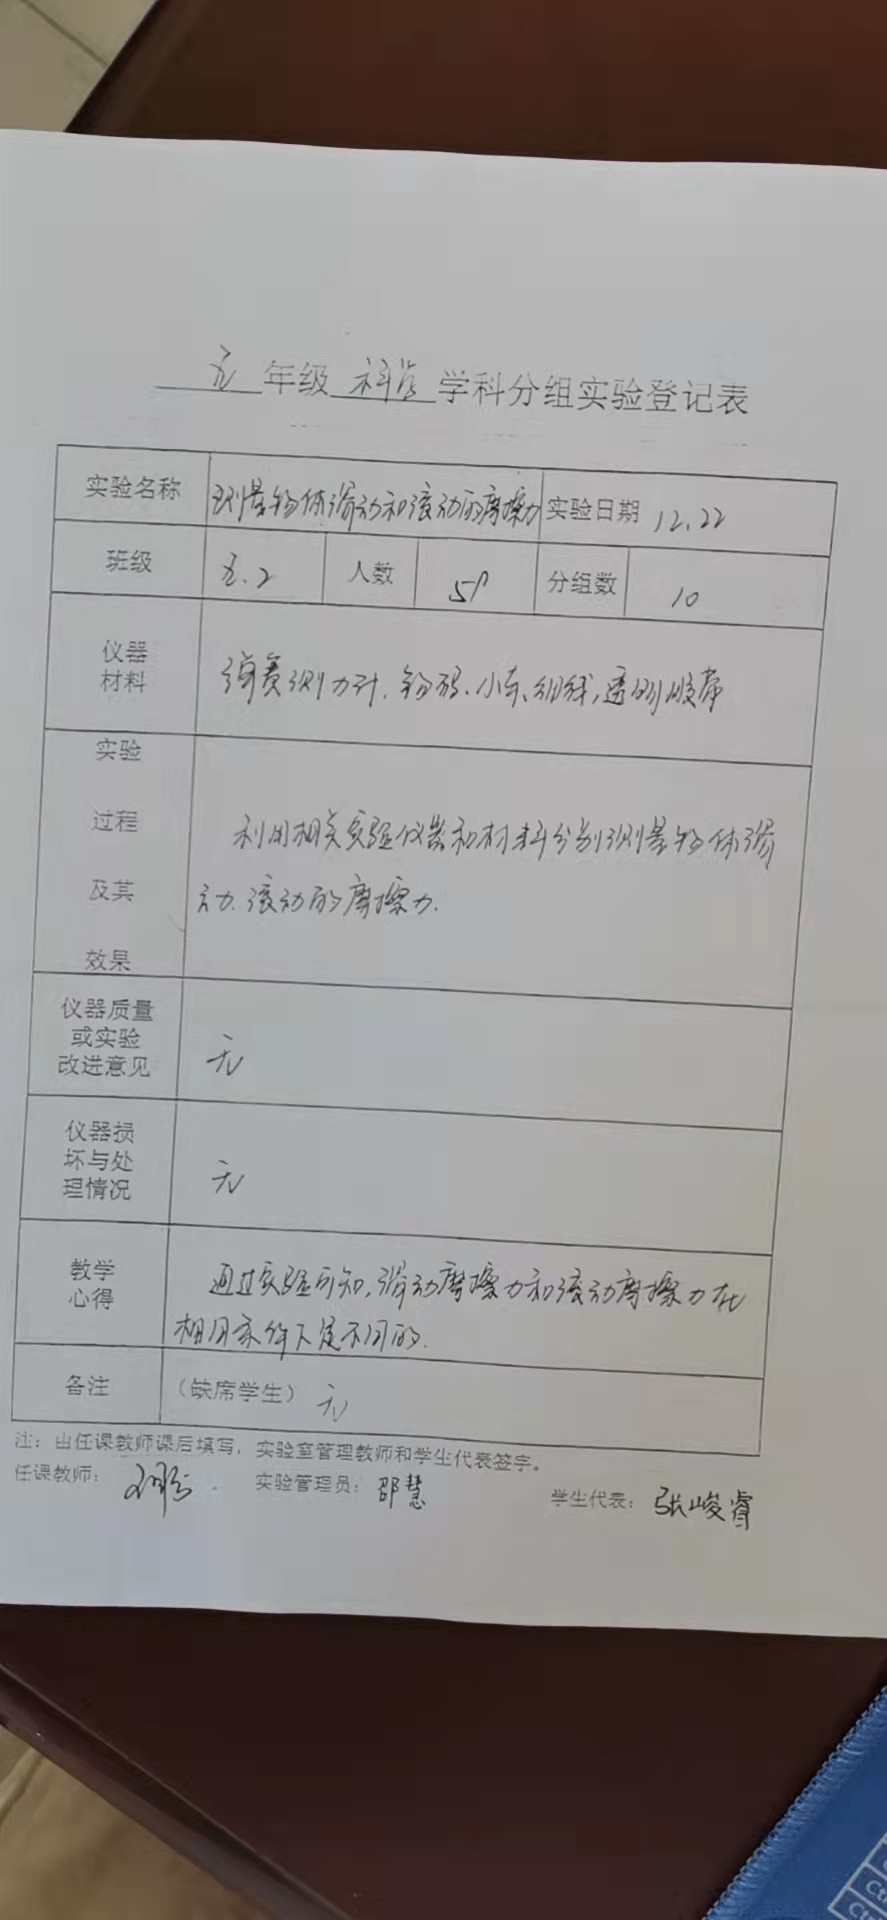 五年级科学学科分组实验登记表
实验名称 测量物体滑动和滚动的摩擦力 实验日期 12.22
班级 五.2 人数 分组数 10
仪器
材料
弹簧测力计、钩码、小车、细线,透明胶带
实验
过程
及其
效果
利用相关实验仪器和材料分别测量物体滑
动.滚动的摩擦力.
仪器质量
或实验
改进意见
无
仪器损
坏与处
理情况
无
教学
心得
通过实验可知,滑动摩擦力和滚动摩擦力在
相同条件下是不同的.
备注 (缺席学生) 无
注:由任课教师课后填写,实验室管理教师和学生代表签字。
任课教师: 实验管理员:邵慧 学生代表:张峻睿